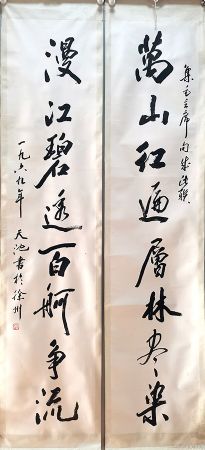 集毛主席句成此聯
萬山红遍層林尽染
漫江碧透百舸争流
一九六九年 天池书於徐州